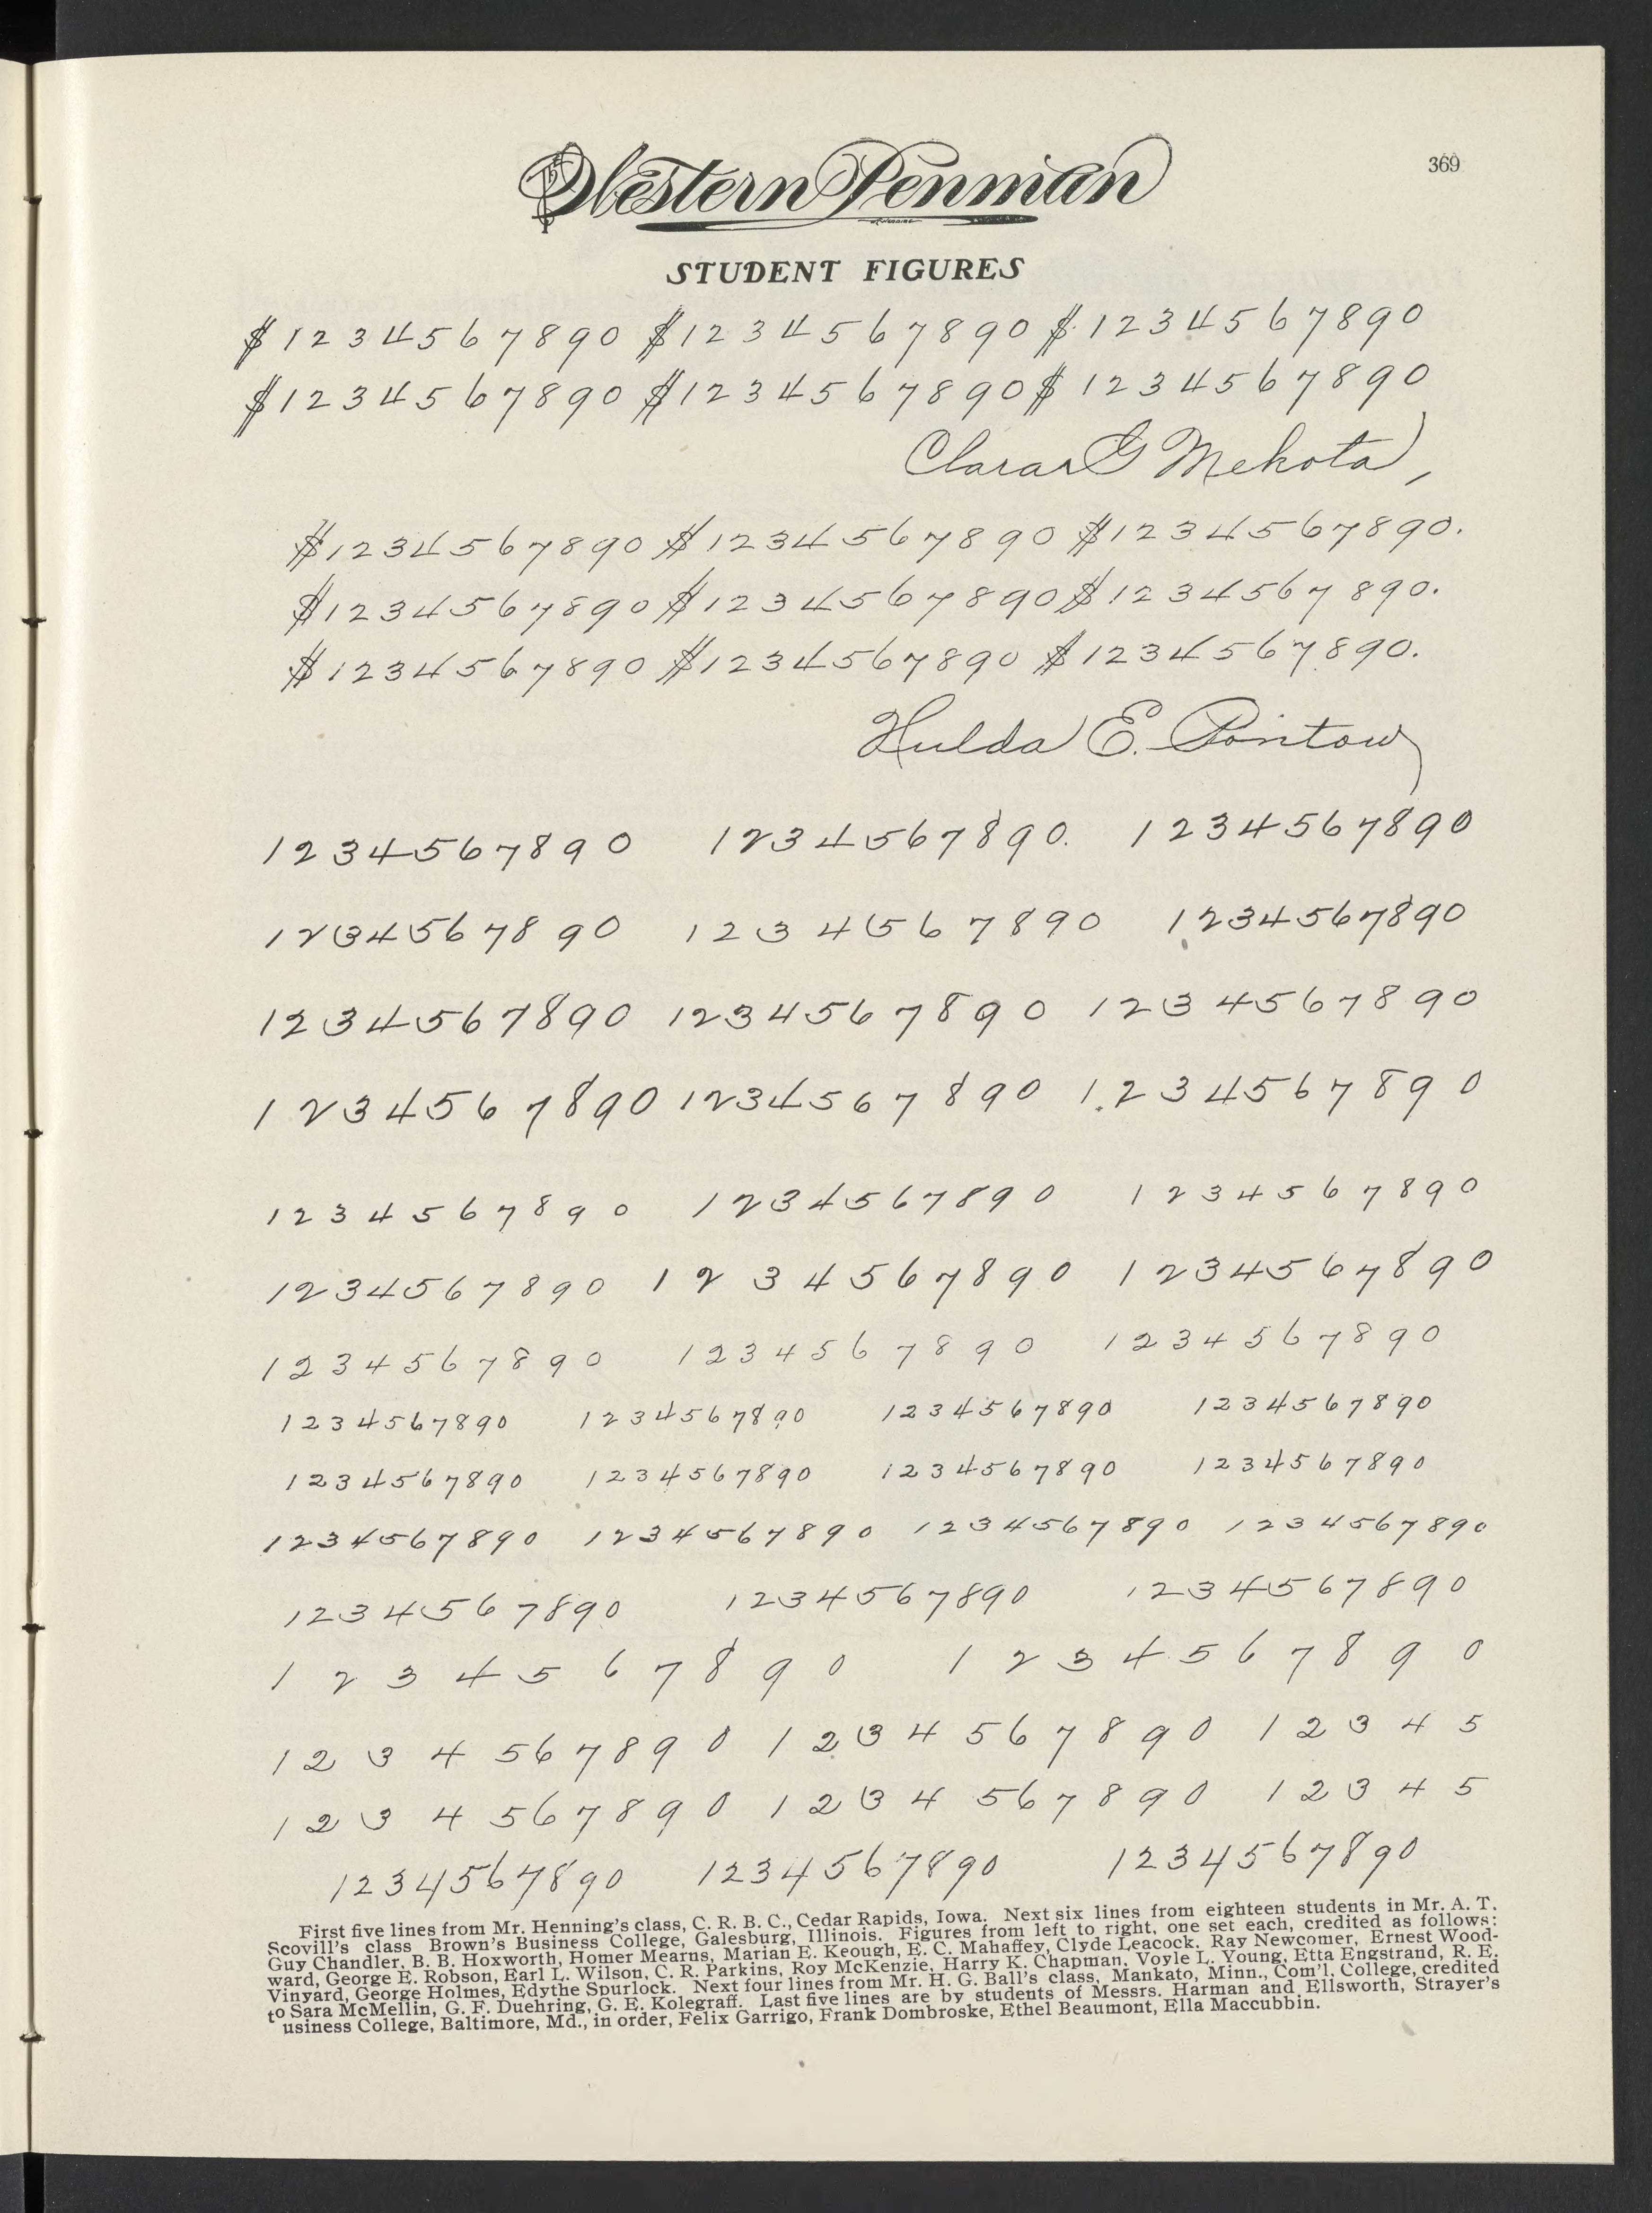 Western Penman
369
STUDENT FIGURES
$1234567890 $1234567890 $1234567890
$1234567890 $1234567890 $1234567890
Clara G Mekota,
$1234567890 $1234567890 $1234567890.
$1234567890 $1234567890 $1234567890.
$1234567890 $1234567890 $1234567890.
Hulda E. Pontow
1234567890 1234567890. 1234567890
1234567890 1234567890 1234567890
1234567890 1234567890 1234567890
1234567890 1234567890 1234567890
1234567890 1234567890 1234567890
1234567890 1234567890 1234567890
1234567890 1234567890 1234567890
1234567890 1234567890 1234567890 1234567890
1234567890 1234567890 1234567890 1234567890
1234567890 1234567890 1234567890 1234567890
1234567890 1234567890 1234567890
1 2 3 4 5 6 7 8 9 0 1 2 3 4 5 6 7 8 9 0
1 2 3 4 5 6 7 8 9 0 1 2 3 4 5 6 7 8 9 0 1 2 3 4 5
1 2 3 4 5 6 7 8 9 0 1 2 3 4 5 6 7 8 9 0 1 2 3 4 5
1234567890 1234567890 1234567890
First five lines from Mr. Henning's class, C. R. B. C., Cedar Rapids, Iowa. Next six lines from eighteen students in Mr. A. T.
Scovill's class Brown's Business College, Galesburg, Illinois. Figures from left to right, one set each, credited as follows:
Guy Chandler, B. B. Hoxworth, Homer Mearns, Marian E. Keough, E. C. Mahaffey, Clyde Leacock, Ray Newcomer, Ernest Wood-
ward, George E. Robson, Earl L. Wilson, C. R. Parkins, Roy McKenzie, Harry K. Chapman, Voyle L. Young, Etta Engstrand, R. E.
Vinyard, George Holmes, Edythe Spurlock. Next four lines from Mr. H. G. Ball's class, Mankato, Minn., Com'l. College, credited
to Sara McMellin, G. F. Duehring, G. E. Kolegraff. Last five lines are by students of Messrs. Harman and Ellsworth, Strayer's
usiness College, Baltimore, Md., in order, Felix Garrigo, Frank Dombroske, Ethel Beaumont, Ella Maccubbin.